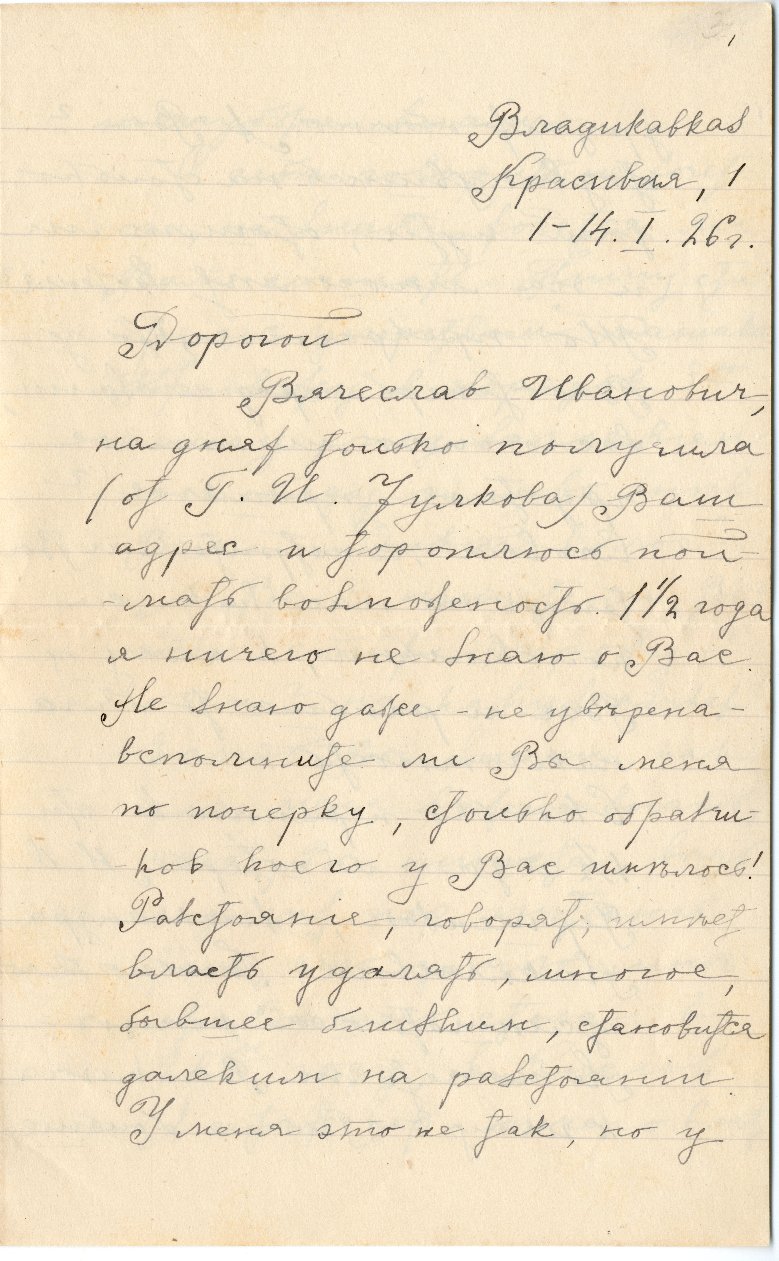 1
Владикавказ
Красивая, 1
1-14. I. 26 г.
Дорогой
Вячеслав Иванович,
на днях только получила
(от Г. И. Чулкова) Ваш
адрес и тороплюсь пой-
-мать возможность. 1 1/2 года
я ничего не знаю о Вас.
Не знаю даже - не увѣрена -
вспомните ли Вы меня
по почерку, столько образчи-
ков коего у Вас имѣлось!
Разстояніе, говорят, имѣет
власть удалять, многое,
бывшее близким, становится
далеким на разстоянии
У меня это не так, но у